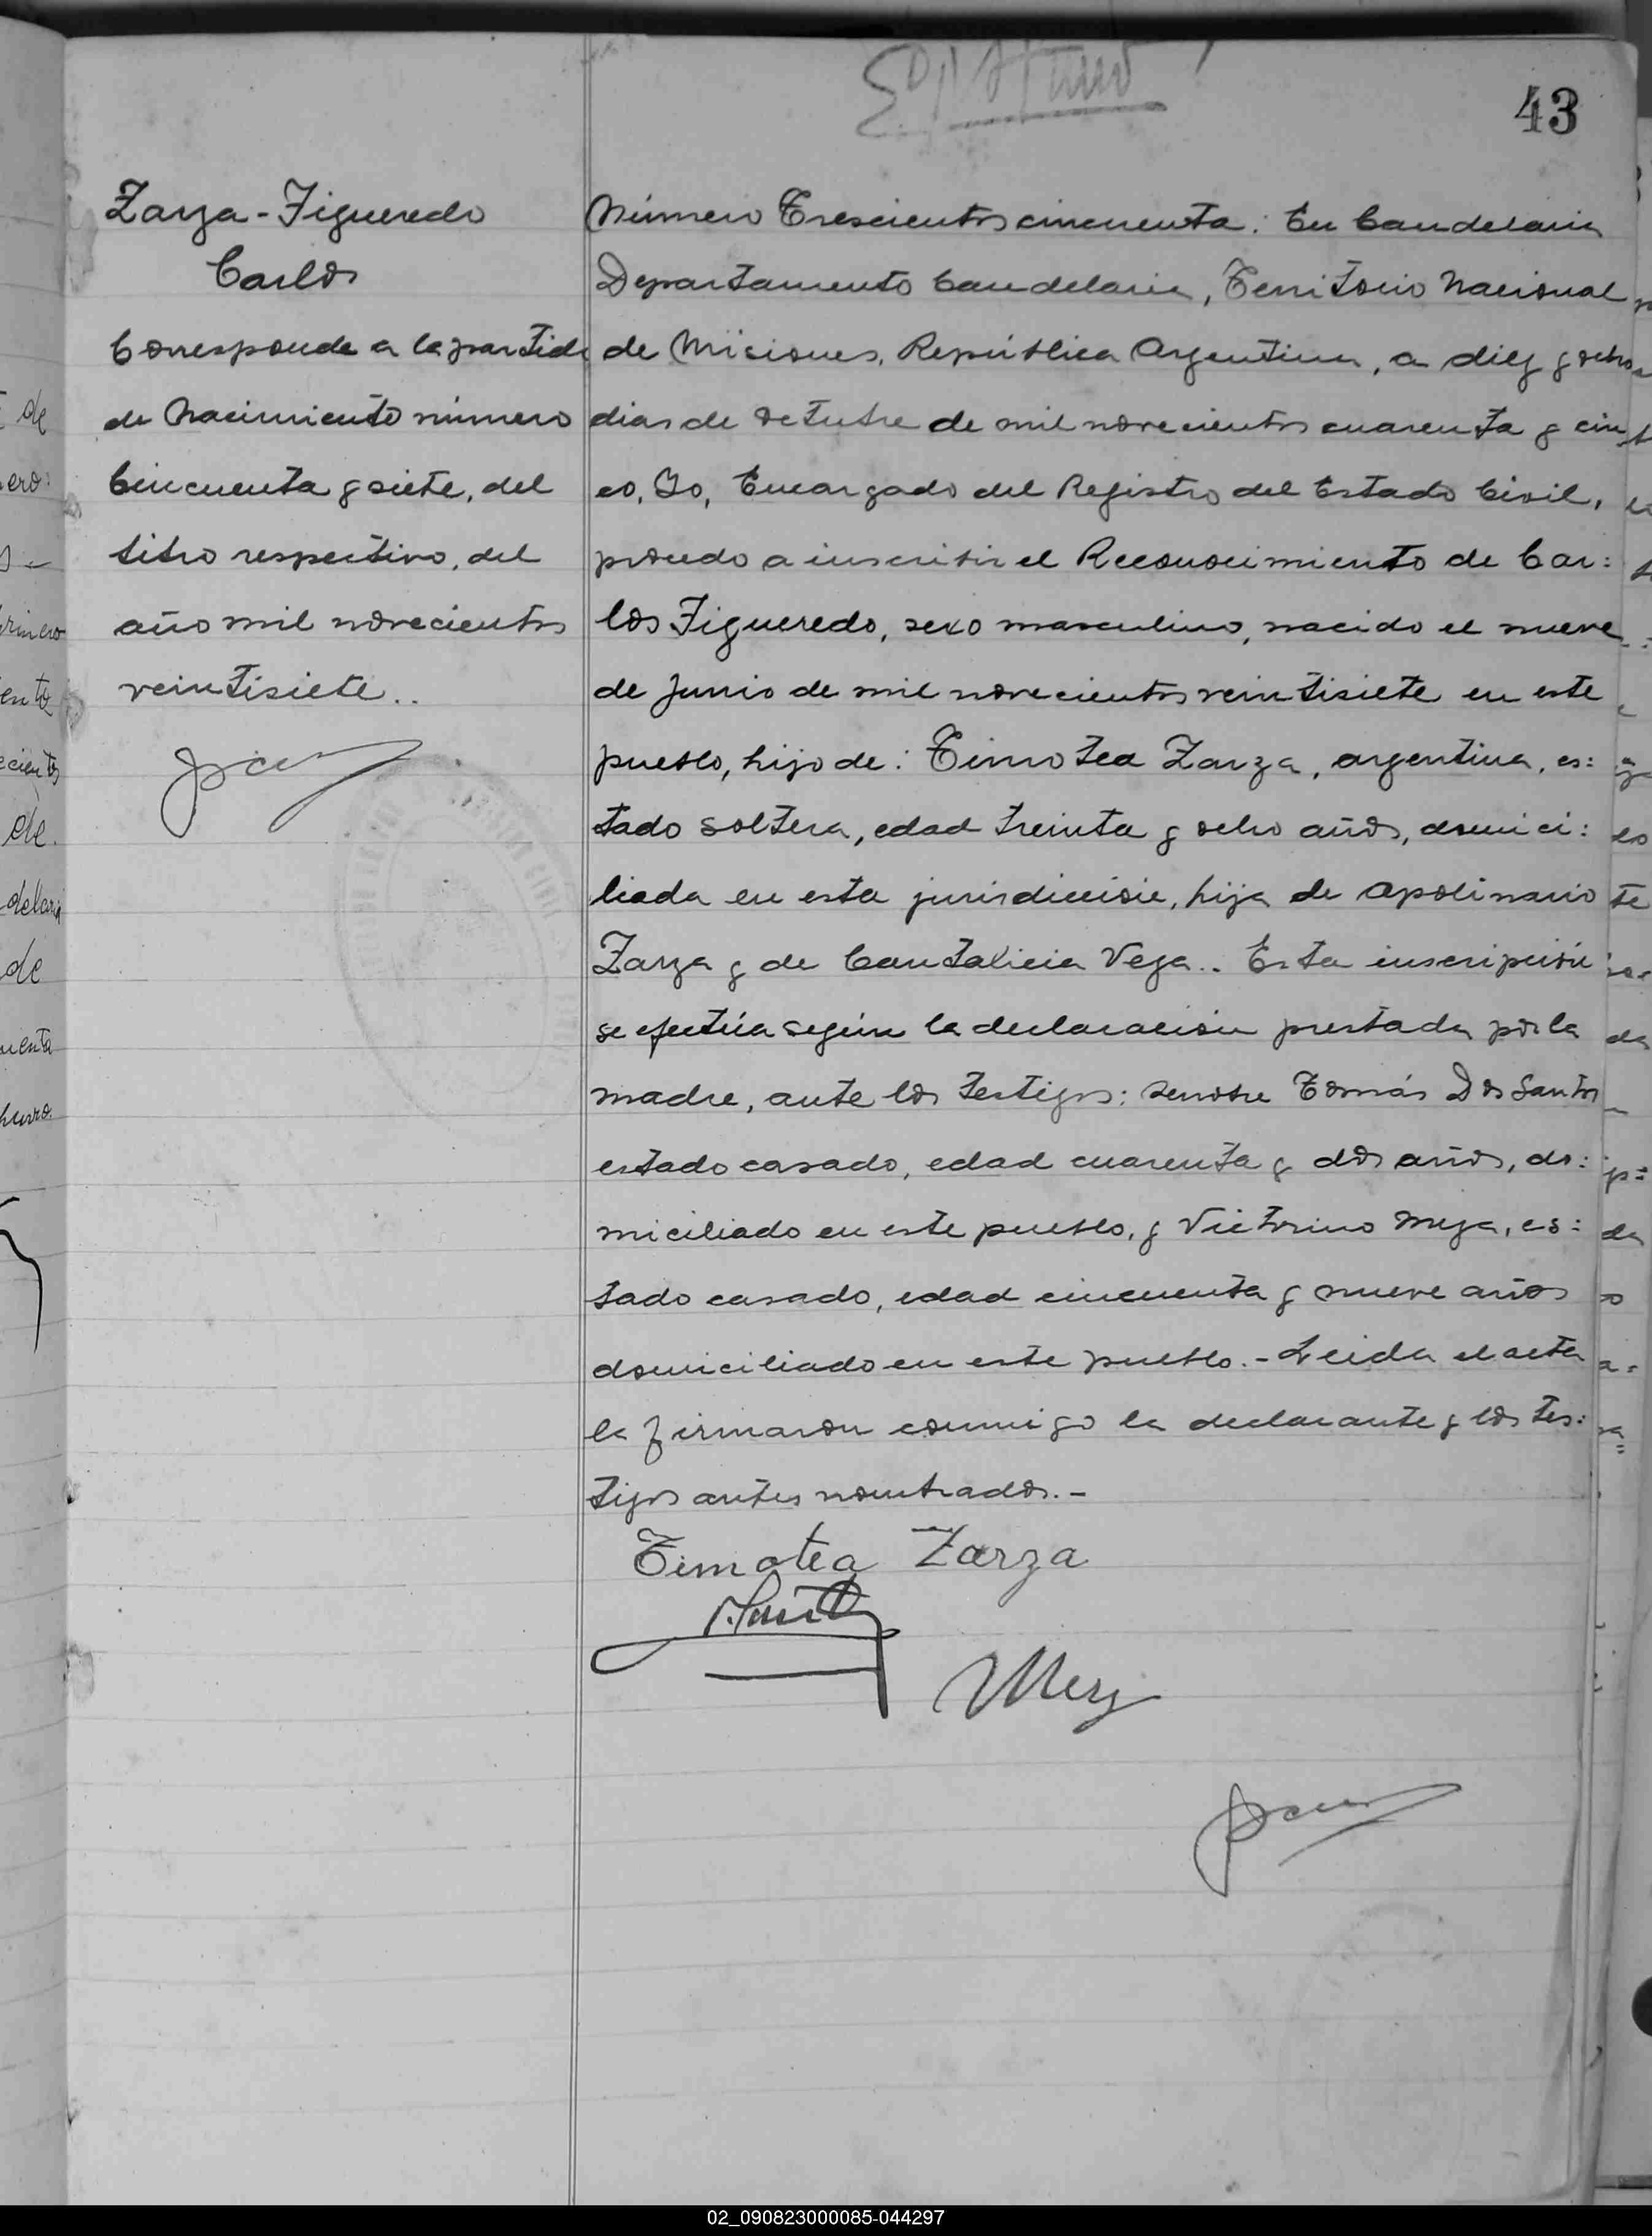 43
Zarza-Figueredo
Carlos
Corresponde a la partida
de Nacimiento número
Cincuenta y siete, del
libro respectivo, del
año mil novecientos
veintisiete..
Número Trescientos cincuenta: En Candelaria
Departamento Candelaria, Territorio Nacional
de Misiones, República Argentina, a diez y ocho
dias de Octubre de mil novecientos cuarenta y cin
co, Yo, Encargado del Registro del Estado Civil,
procedo a inscribir el Reconocimiento de Car:
los Figueredo, sexo masculino, nacido el nueve
de Junio de mil novecientos veintisiete en este
pueblo, hijo de: Timotea Zarza, argentina, es:
tado soltera, edad treinta y ocho años, domici:
liada en esta jurisdicción, hija de Apolinario
Zarza y de Cantalicia Vega.. Esta inscripción
se efectúa según la declaración prestada por la
madre, ante los testigos: Tomás Dos Santos
estado casado, edad cuarenta y dos años, do:
miciliado en este pueblo, y Victorino Meza, es:
tado casado, edad cincuenta y nueve años
domiciliado en este pueblo.- Leida el acta
la firmaron conmigo la declarante y los tes:
tigos antes nombrados.-
Timotea Zarza
02_090823000085-044297